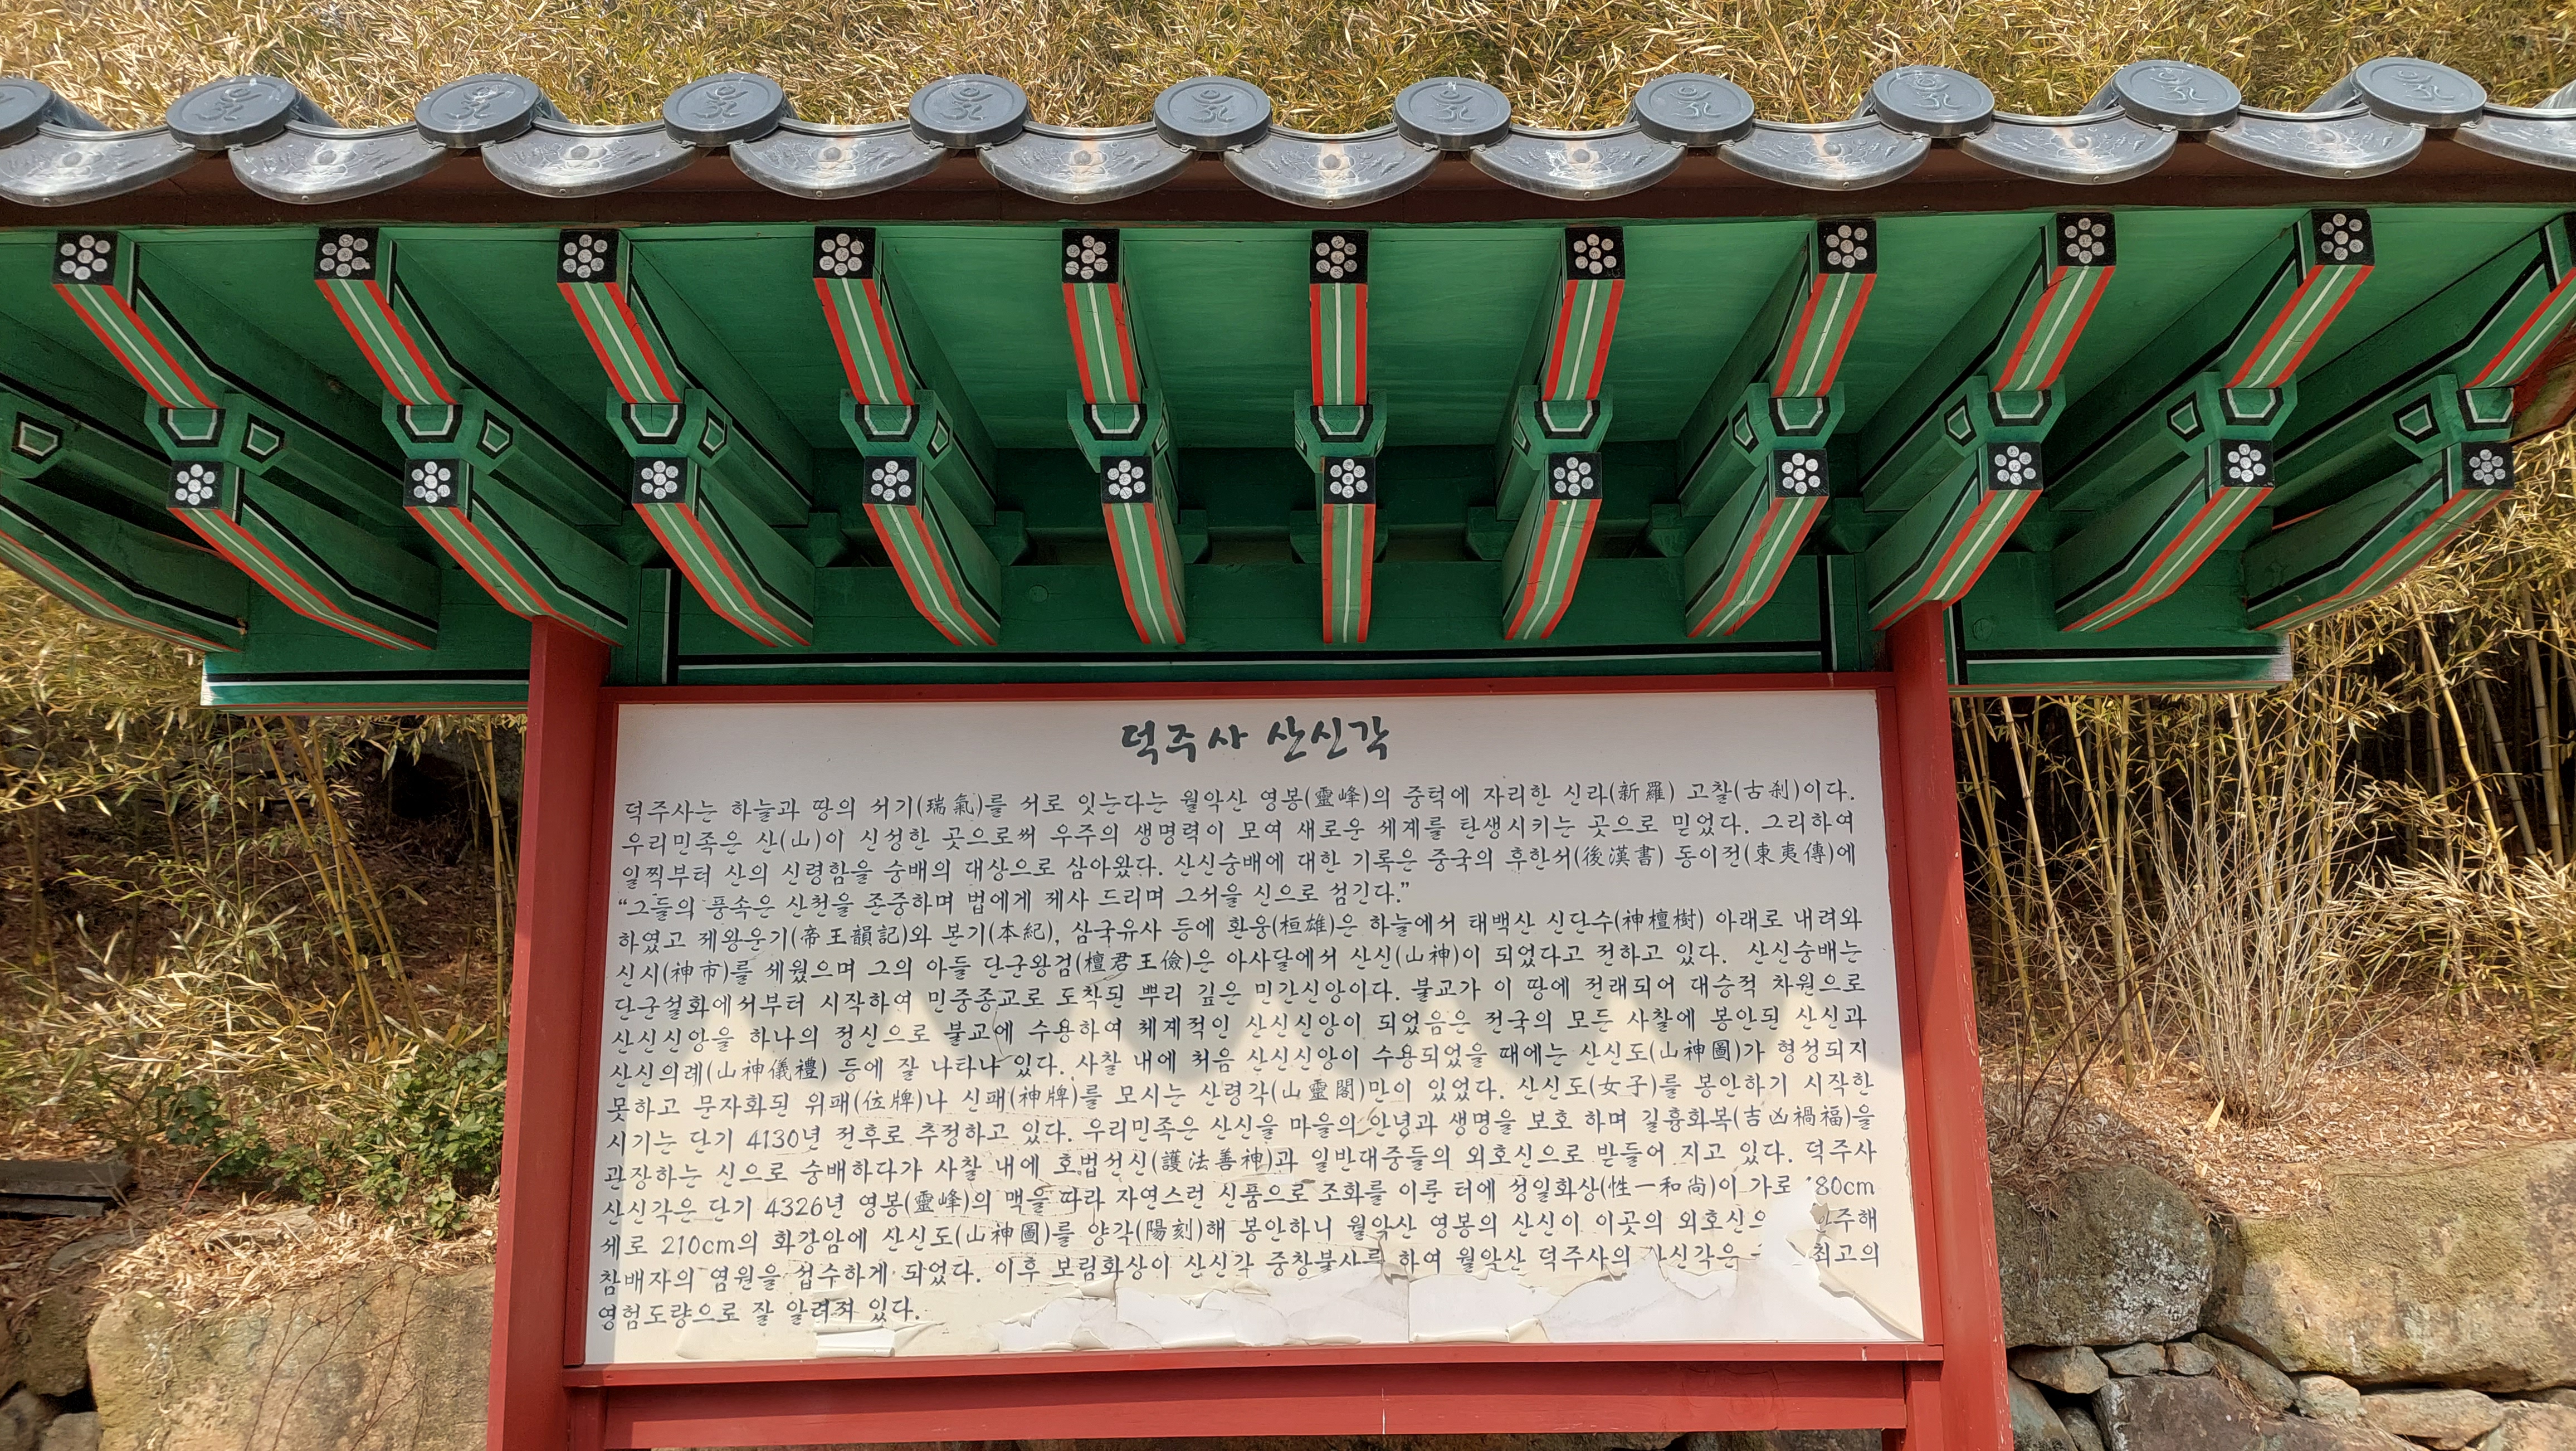 덕주사 산신각
덕주사는 하늘과 땅의 서기(瑞氣)를 서로 잇는다는 월악산 영봉(靈峰)의 중턱에 자리한 신라(新羅) 고찰(古刹)이다.
우리민족은 산(山)이 신성한 곳으로써 우주의 생명력이 모여 새로운 세계를 탄생시키는 곳으로 믿었다. 그리하여
일찍부터 산의 신령함을 숭배의 대상으로 삼아왔다. 산신숭배에 대한 기록은 중국의 후한서(後漢書) 동이전(東夷傳)에
“그들의 풍속은 산천을 존중하며 범에게 제사 드리며 그서을 신으로 섬긴다.”
하였고 제왕운기(帝王韻記)와 본기(本紀), 삼국유사 등에 환웅(桓雄)은 하늘에서 태백산 신단수(神檀樹) 아래로 내려와
신시(神市)를 세웠으며 그의 아들 단군왕검(檀君王儉)은 아사달에서 산신(山神)이 되었다고 전하고 있다. 산신숭배는
단군설화에서부터 시작하여 민중종교로 도착된 뿌리 깊은 민간신앙이다. 불교가 이 땅에 전래되어 대승적 차원으로
산신신앙을 하나의 정신으로 불교에 수용하여 체계적인 산신신앙이 되었음은 전국의 모든 사찰에 봉안된 산신과
산신의례(山神儀禮) 등에 잘 나타나 있다. 사찰 내에 처음 산신신앙이 수용되었을 때에는 산신도(山神圖)가 형성되지
못하고 문자화된 위패(位牌)나 신패(神牌)를 모시는 산령각(山靈閣)만이 있었다. 산신도(女子)를 봉안하기 시작한
시기는 단기 4130년 전후로 추정하고 있다. 우리민족은 산신을 마을의 안녕과 생명을 보호 하며 길흉화복(吉凶禍福)을
관장하는 신으로 숭배하다가 사찰 내에 호법선신(護法善神)과 일반대중들의 외호신으로 받들어 지고 있다. 덕주사
산신각은 단기 4326년 영봉(靈峰)의 맥을 따라 자연스런 신품으로 조화를 이룬 터에 성일화상(性一和尚)이 가로 80cm
세로 210cm의 화강암에 산신도(山神圖)를 양각(陽刻)해 봉안하니 월악산 영봉의 산신이 이곳의 외호신으 주해
참배자의 염원을 섭수하게 되었다. 이후 보림화상이 산신각 중창불사를 하여 월악산 덕주사의 산신각은 최고의
영험도량으로 잘 알려져 있다.